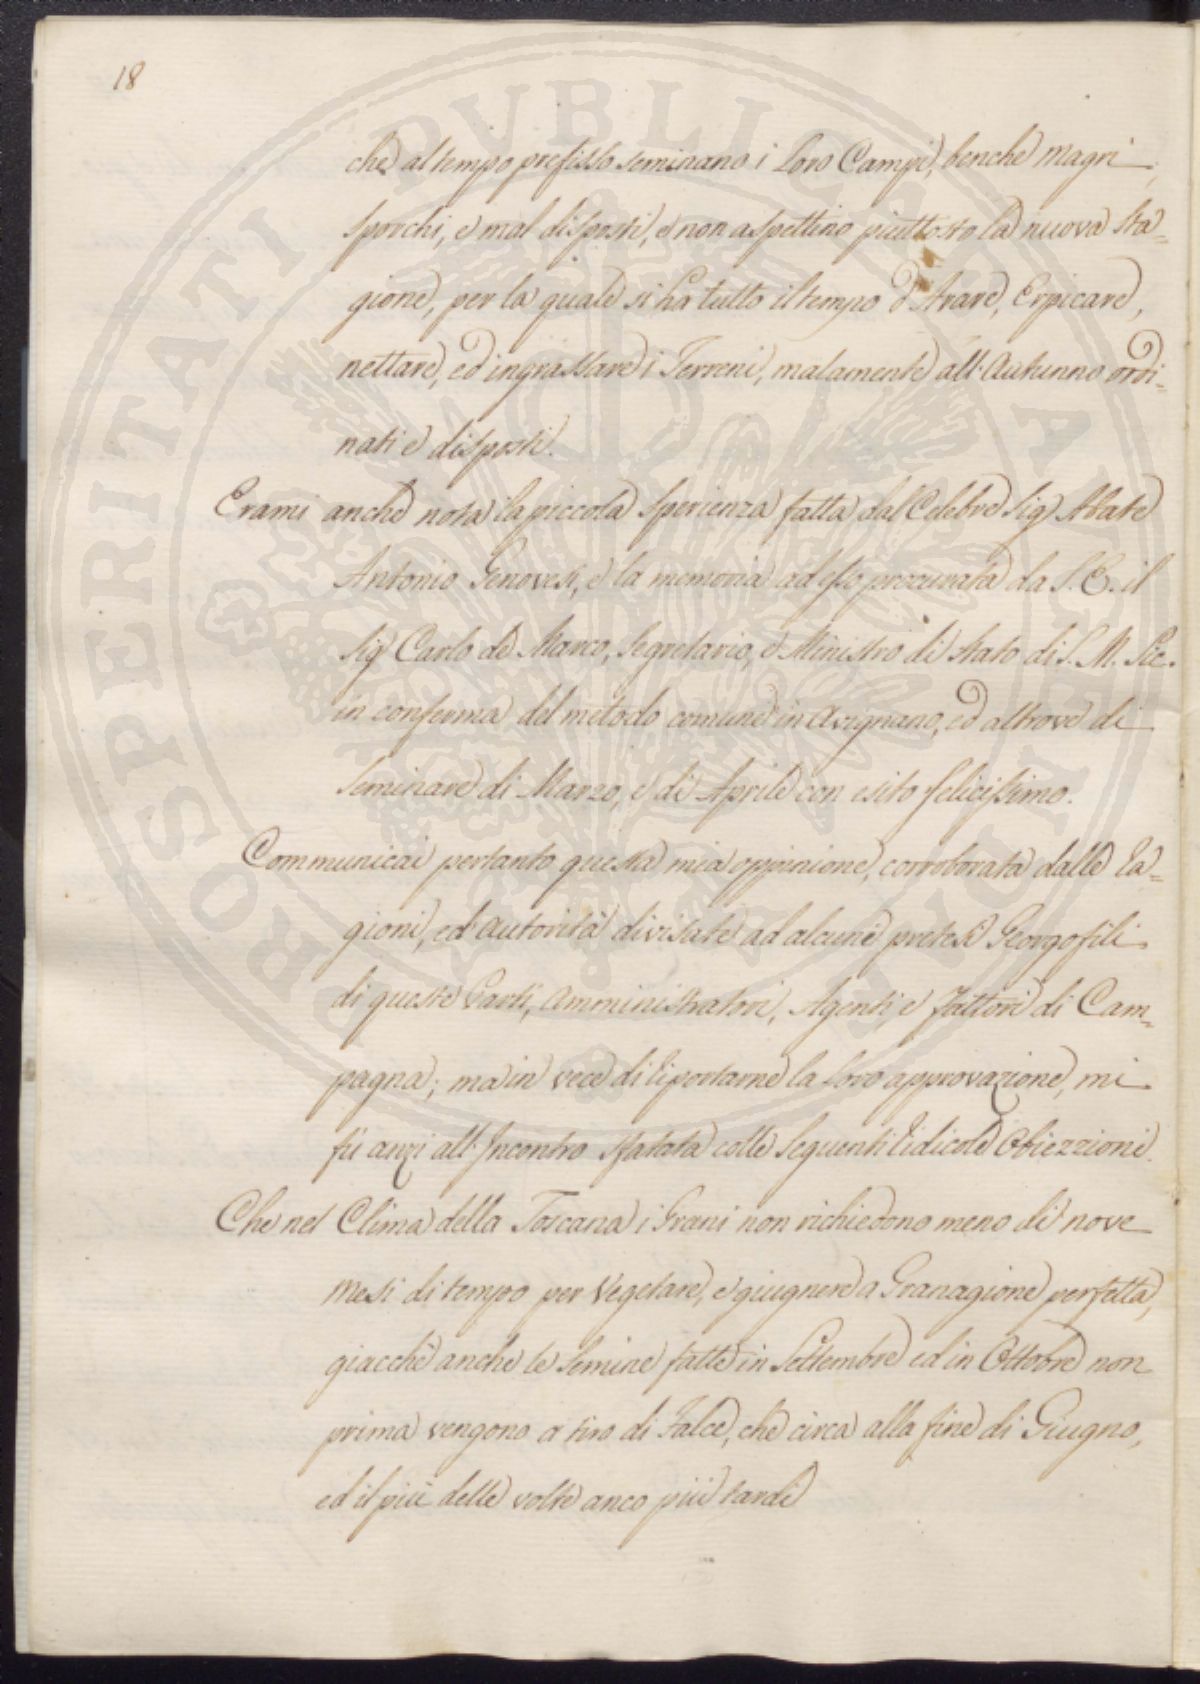 18
che al tempo prefisso seminano i loro Campi, benche magri,
sporchi, e mal disposti, e non aspettino piuttosto la nuova sta=
gione, per la quale si ha tutto il tempo d'Arare, Erpicare,
nettare, ed ingrassare i Terreni, malamente all'Autunno ordi=
nati e disposti.
Erami anche nota la piccola sperienza fatta dal Celebre Sig Abate
Antonio Genovesi, e la memoria ad esso procurata da S. E. il
Sig Carlo de Marco, Segretario, e Ministro di Stato di S. M. Sic.
in conferma del metodo comune in Avignano, ed altrove di
seminare di Marzo, e di Aprile con esito felicissimo.
Communicai pertanto questa mia oppinione, corroborata dalle Ra=
gioni, ed autorità divisate ad alcuni pretesi Georgofili
di queste Parti, Amministratori, Agenti, e Fattori di Cam=
pagna; ma in vece di riportarne la loro approvazione, mi
fù anzi all'Incontro sfatata colle seguenti ridicole Obiezzioni.
Che nel Clima della Toscana i Grani non richiedono meno di nove
mesi di tempo per vegetare, e giugnere a Granagione perfetta,
giacchè anche le semine fatte in Settembre ed in Ottobre non
prima vengono a tiro di Falce, che circa alla fine di Giugno,
ed il più delle volte anco più tardi
PROSPERITATI PUBLICAE AUGENDAE